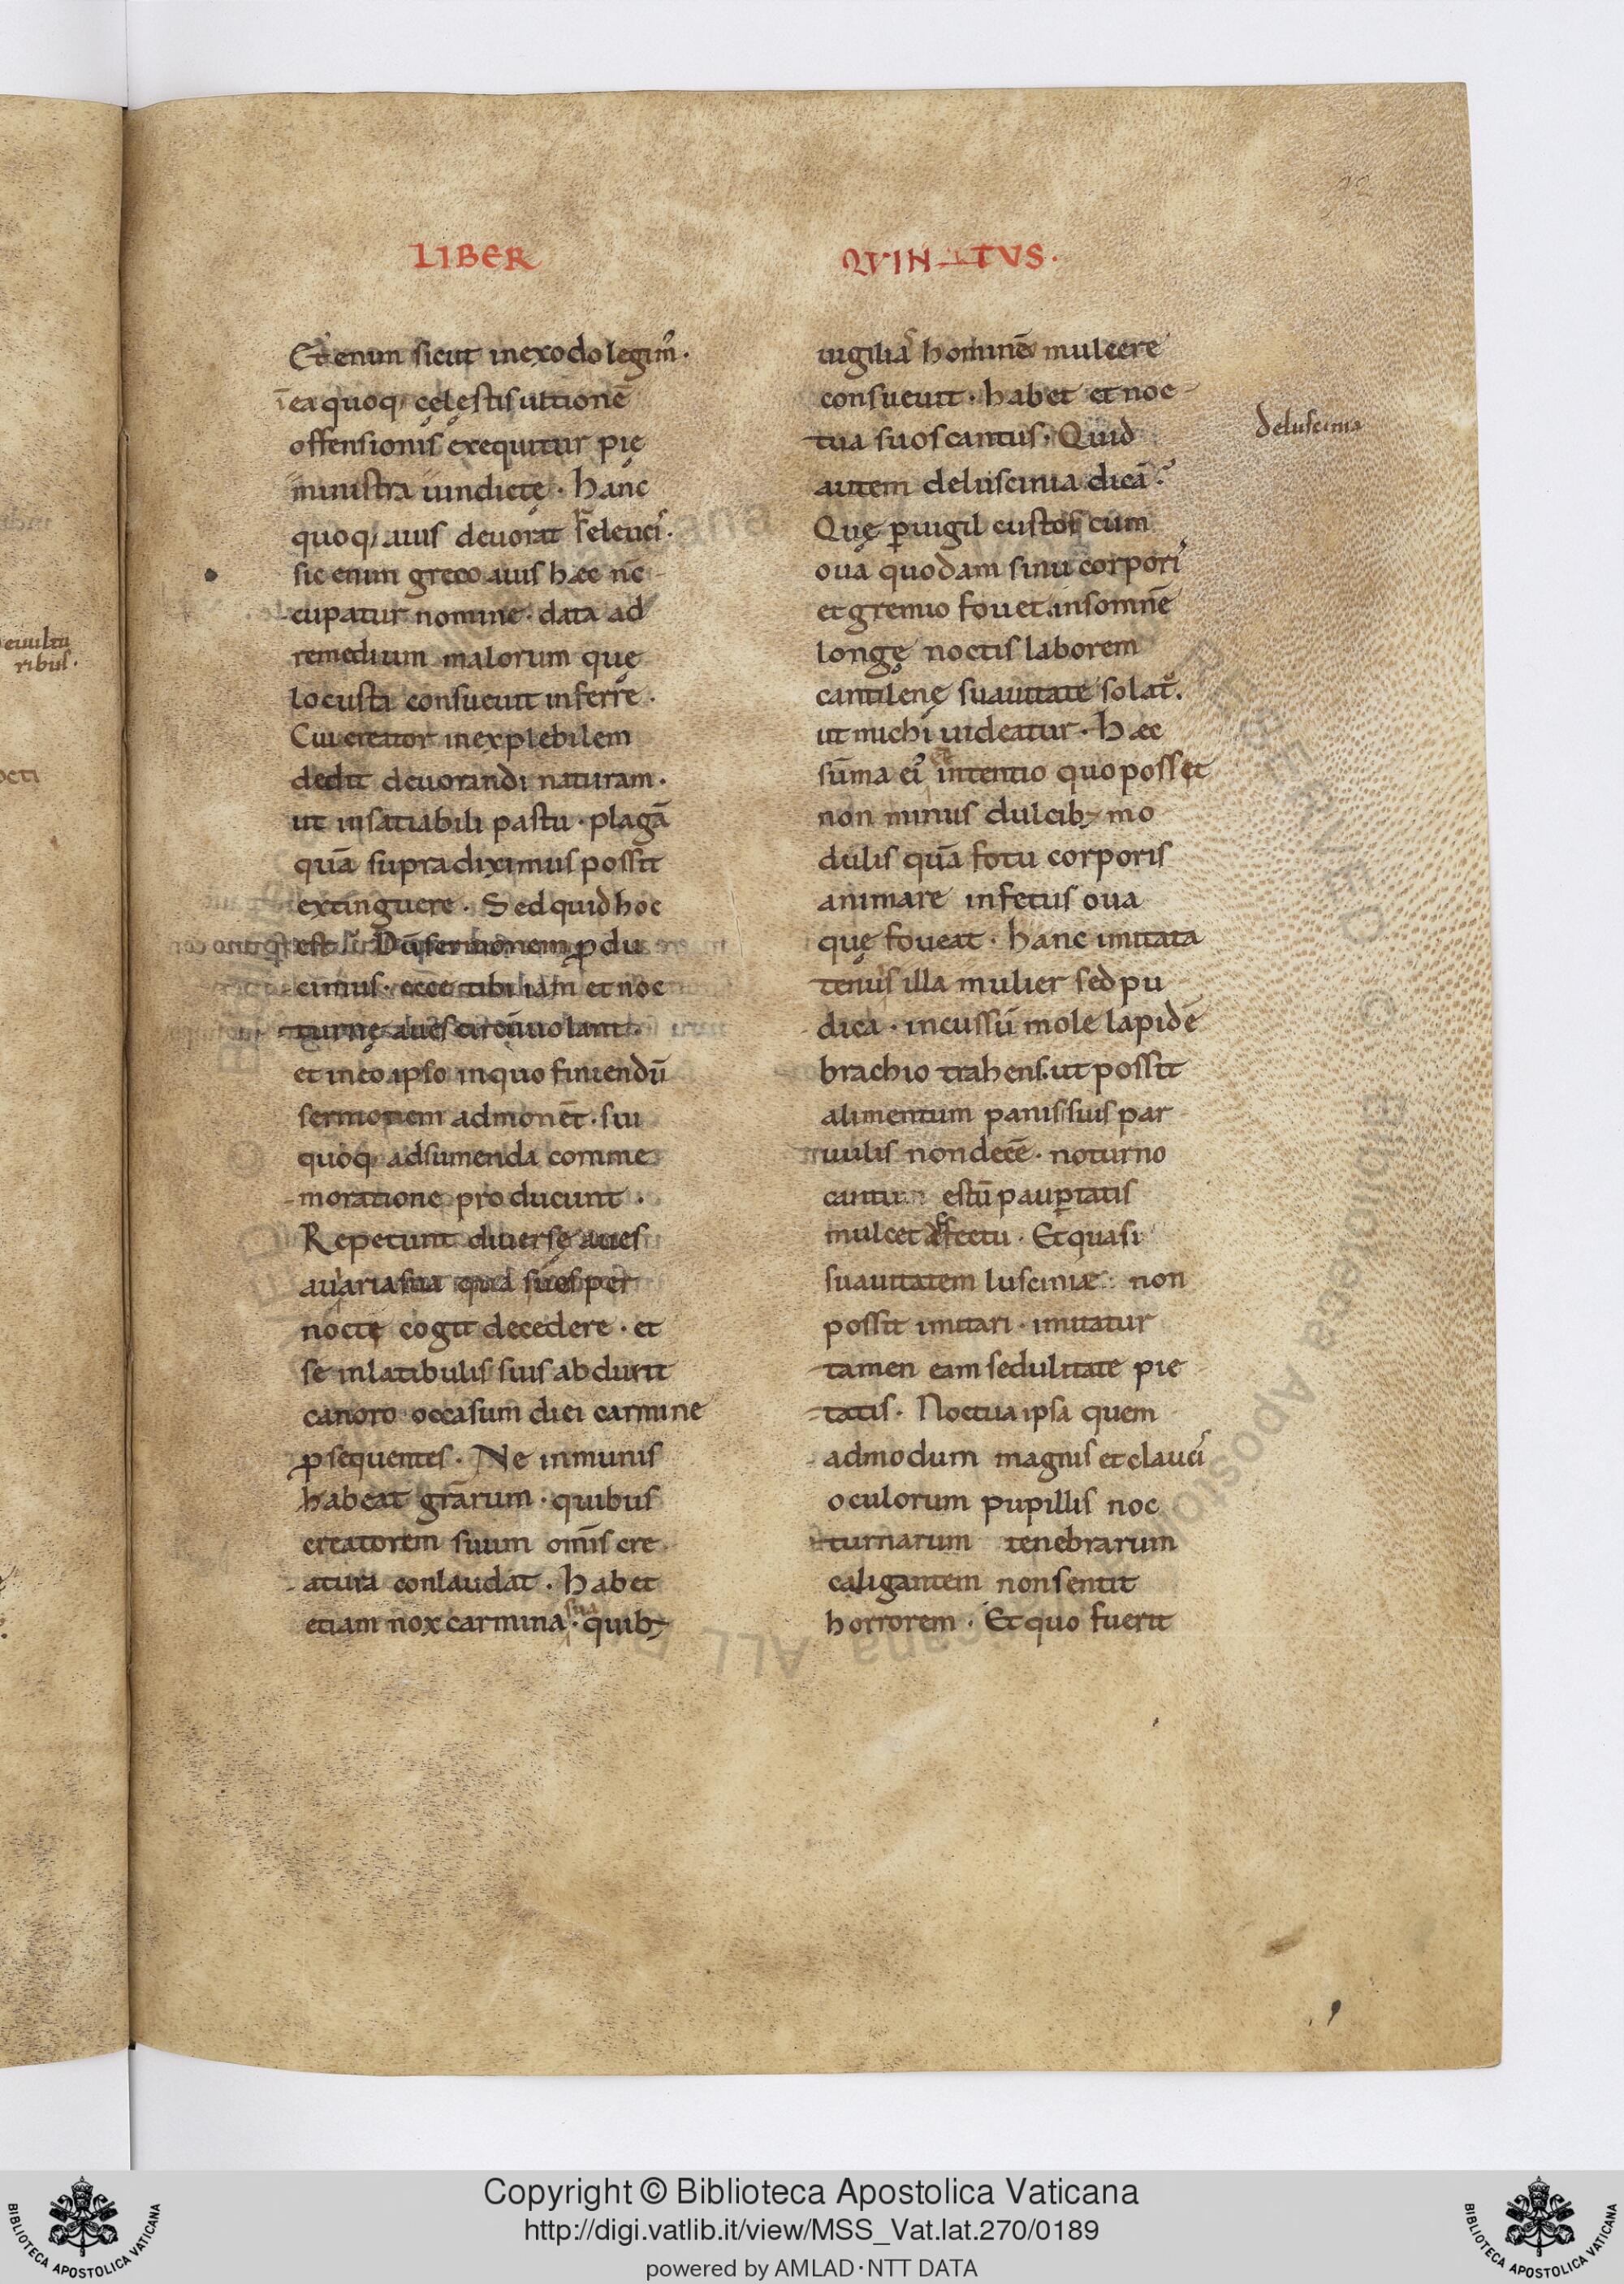 LIBER
QVINTVS.
Et enim sicut in exodo legim᷒·
ī ea quoq; cęlęstis ultionē
offensionis exequitur pię
ministra uindictę · hanc
quoq; auis deuorat seleuci᷒·
sic enim greco auis hæc nc̄
cupatur nomine · data ad
remedium malorum quę
locusta consueuit inferre ·
Cui creator inexplebilem
dedit deuorandi naturam ·
ut insatiabili pastu · plagā
quā supra diximus possit
extinguere · Sed quid hoc
est Dū sermonem ꝓdu
cimus · ecce tibi iam et noc
turnę aues circūuolant ·
et in eo ipso in quo finiendū
sermonem admonēt · sui
quoq; adsumenda comme
moratione producunt ·
Repetunt diuersę aues
auaria sua qua suos per
noctę cogit decedere · et
se in latibulis suis abdunt
canoro occasum diei carmine
ꝓsequentes · Ne inmunis
habeat gr̄arum · quibus
creatorem suum om̄is cre
atura conlaudat · habet
etiam nox carmina sua · quib;
uigilia᷒ hominē mulcere
consueuit · habet et noc
tua suos cantus · Quid
autem de luscinia dicā?
Quę ꝑuigil custos cum
oua quodam sinu corpori᷒
et gremio fouet insomnē
longę noctis laborem
cantilenę suauitate solat᷒.
ut michi uideatur · hæc
sūma ei᷒ intentio quo posset
non minus dulcib; mo
dulis quā fotu corporis
animare infetus oua
quę foueat · hanc imitata
tenuis illa mulier sed pu
dica · in cussū mole lapidē
brachio trahens. ut possit
alimentum panis suis par
uulis non deeē · noturno
cantu estū pauꝑtatis
mulcet affectu · Et quasi
suauitatem lusciniæ non
possit imitari · imitatur
tamen eam sedulitate pie
tatis · Noctua ipsa quem
admodum magnis et glauci᷒
oculorum pupillis noc
turnarum tenebrarum
caligantem non sentit
horrorem · Et quo fuerit
de luscinia
euultu
ribus.
Copyright © Biblioteca Apostolica Vaticana
http://digi.vatlib.it/view/MSS_Vat.lat.270/0189
powered by AMLAD·NTT DATA
BIBLIOTECA APOSTOLICA VATICANA
BIBLIOTECA APOSTOLICA VATICANA